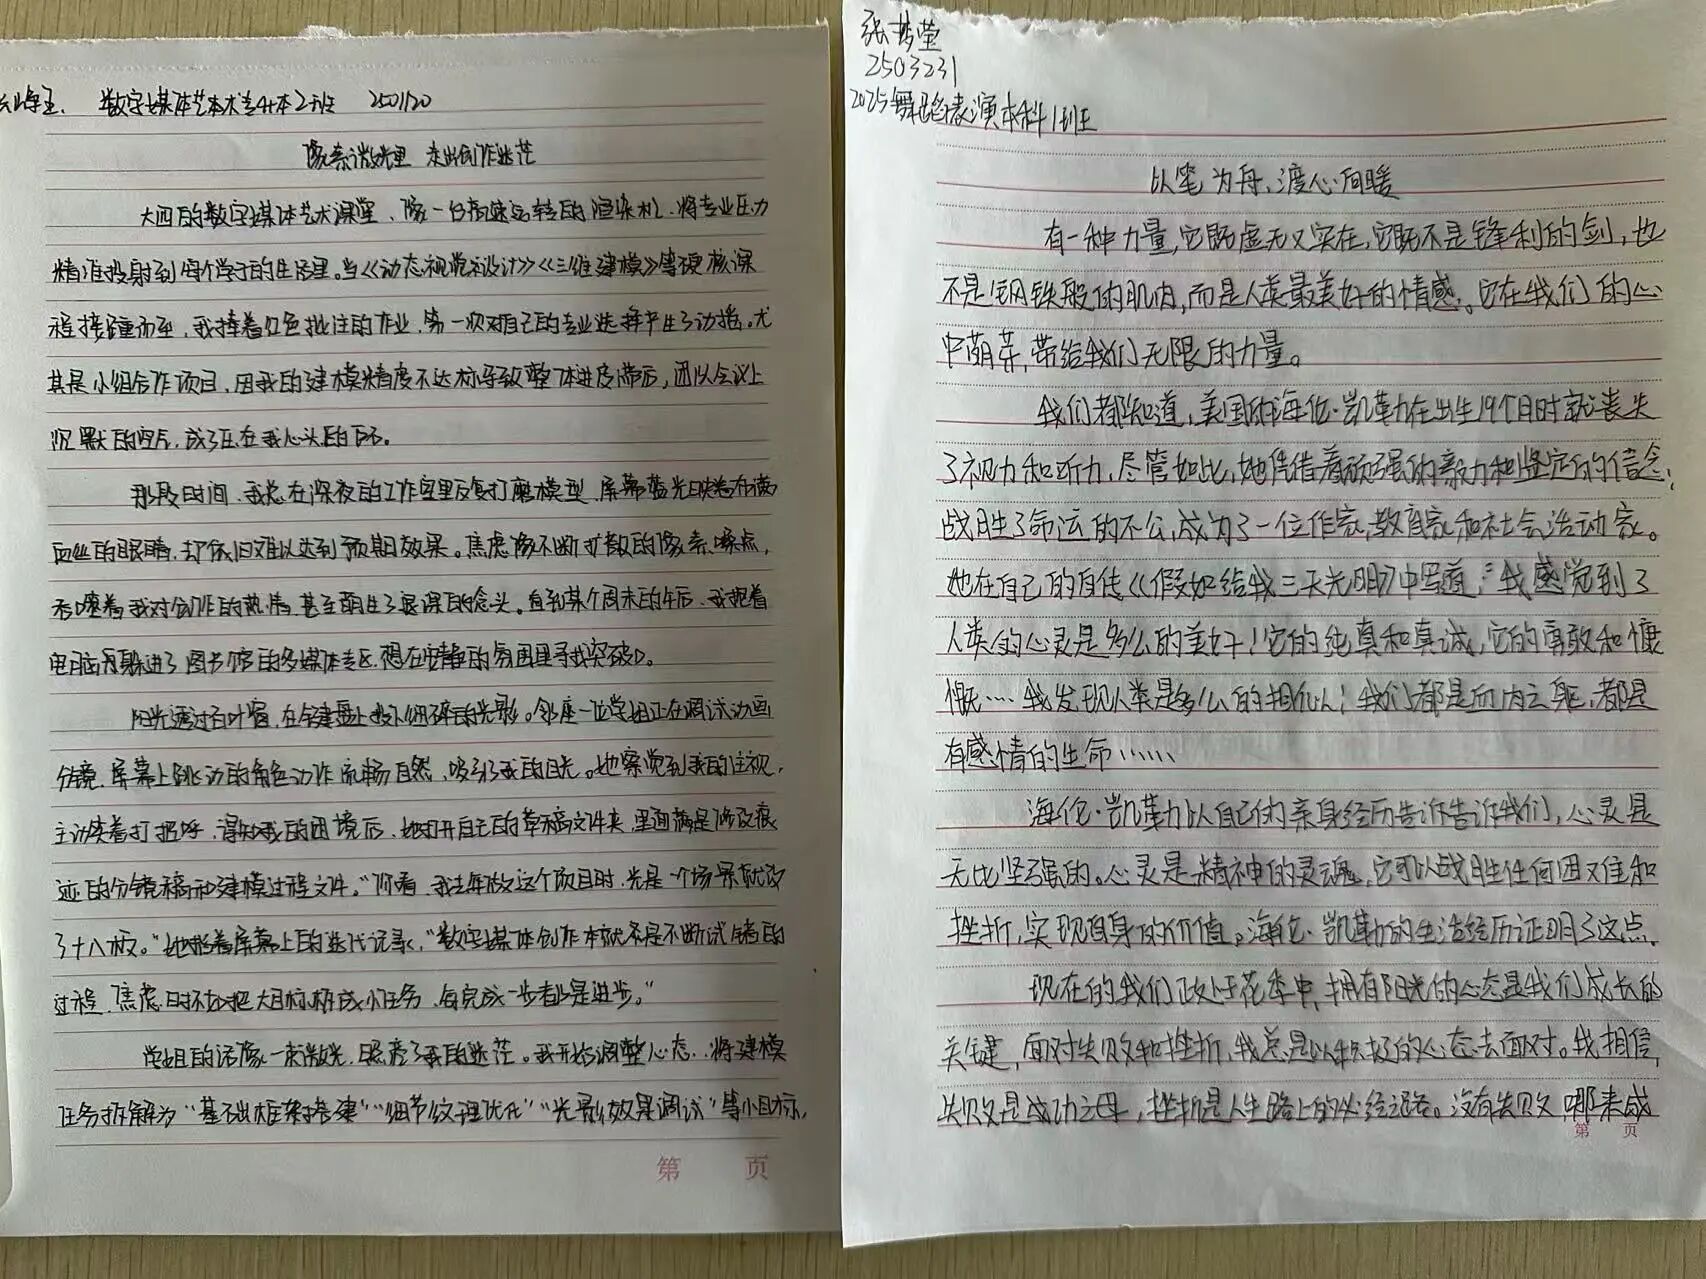 数字媒体艺术专升本2班 2501120
像素微光里 走出创作迷茫
大四的数字媒体艺术课堂，像一台高速运转的渲染机，将专业压力
精准投射到每个学子的生活里。当《动态视觉设计》《三维建模》等硬核课
程接踵而至，我捧着红色批注的作业，第一次对自己的专业选择产生了动摇。尤
其是小组合作项目，因我的建模精度不达标导致整体进度滞后，团队会议上
沉默的空气，成了压在我心头的石。
那段时间，我总在深夜的工作室里反复打磨模型，屏幕蓝光映着布满
血丝的眼睛，却依旧难以达到预期效果。焦虑像不断扩散的像素噪点，
吞噬着我对创作的热情，甚至萌生了退课的念头。直到某个周末的午后，我抱着
电脑躲进了图书馆的多媒体专区，想在安静的氛围里寻找突破口。
阳光透过百叶窗，在键盘上投下细碎的光影。邻座一位学姐正在调试动画
分镜，屏幕上跳动的角色动作流畅自然，吸引了我的目光。她察觉到我的注视，
主动笑着打招呼，得知我的困境后，她打开自己的草稿文件夹，里面满是修改痕
迹的分镜稿和建模过程文件。“你看，我去年做这个项目时，光是一个场景就改
了十八版。”她指着屏幕上的迭代记录，“数字媒体创作本就是不断试错的
过程，焦虑时不如把大目标拆成小任务，每完成一步都是进步。”
学姐的话像一束微光，照亮了我的迷茫。我开始调整心态，将建模
任务拆解为“基础框架搭建”“细节纹理优化”“光影效果调试”等小目标，
第 页
张梦莹
2503231
2025舞蹈表演本科1班
以笔为舟，渡心向暖
有一种力量，它既虚无又实在，它既不是锋利的剑，也
不是钢铁般的肌肉，而是人类最美好的情感。它在我们的心
中萌芽，带给我们无限的力量。
我们都知道，美国的海伦·凯勒在出生19个月时就丧失
了视力和听力，尽管如此，她凭借着顽强的毅力和坚定的信念，
战胜了命运的不公，成为了一位作家，教育家和社会活动家。
她在自己的自传《假如给我三天光明》中写道：“我感觉到了
人类的心灵是多么的美好！它的纯真和真诚，它的勇敢和慷
慨……我发现人类是多么的相似！我们都是血肉之躯，都是
有感情的生命……
海伦·凯勒以自己的亲身经历告诉告诉我们，心灵是
无比坚强的。心灵是精神的灵魂，它可以战胜任何困难和
挫折，实现自身的价值。海伦·凯勒的生活经历证明了这点。
现在的我们正处于花季中，拥有阳光的心态是我们成长的
关键，面对失败和挫折，我总是以积极的心态去面对。我相信，
失败是成功之母，挫折是人生路上的必经之路。没有失败，哪来成
第 页